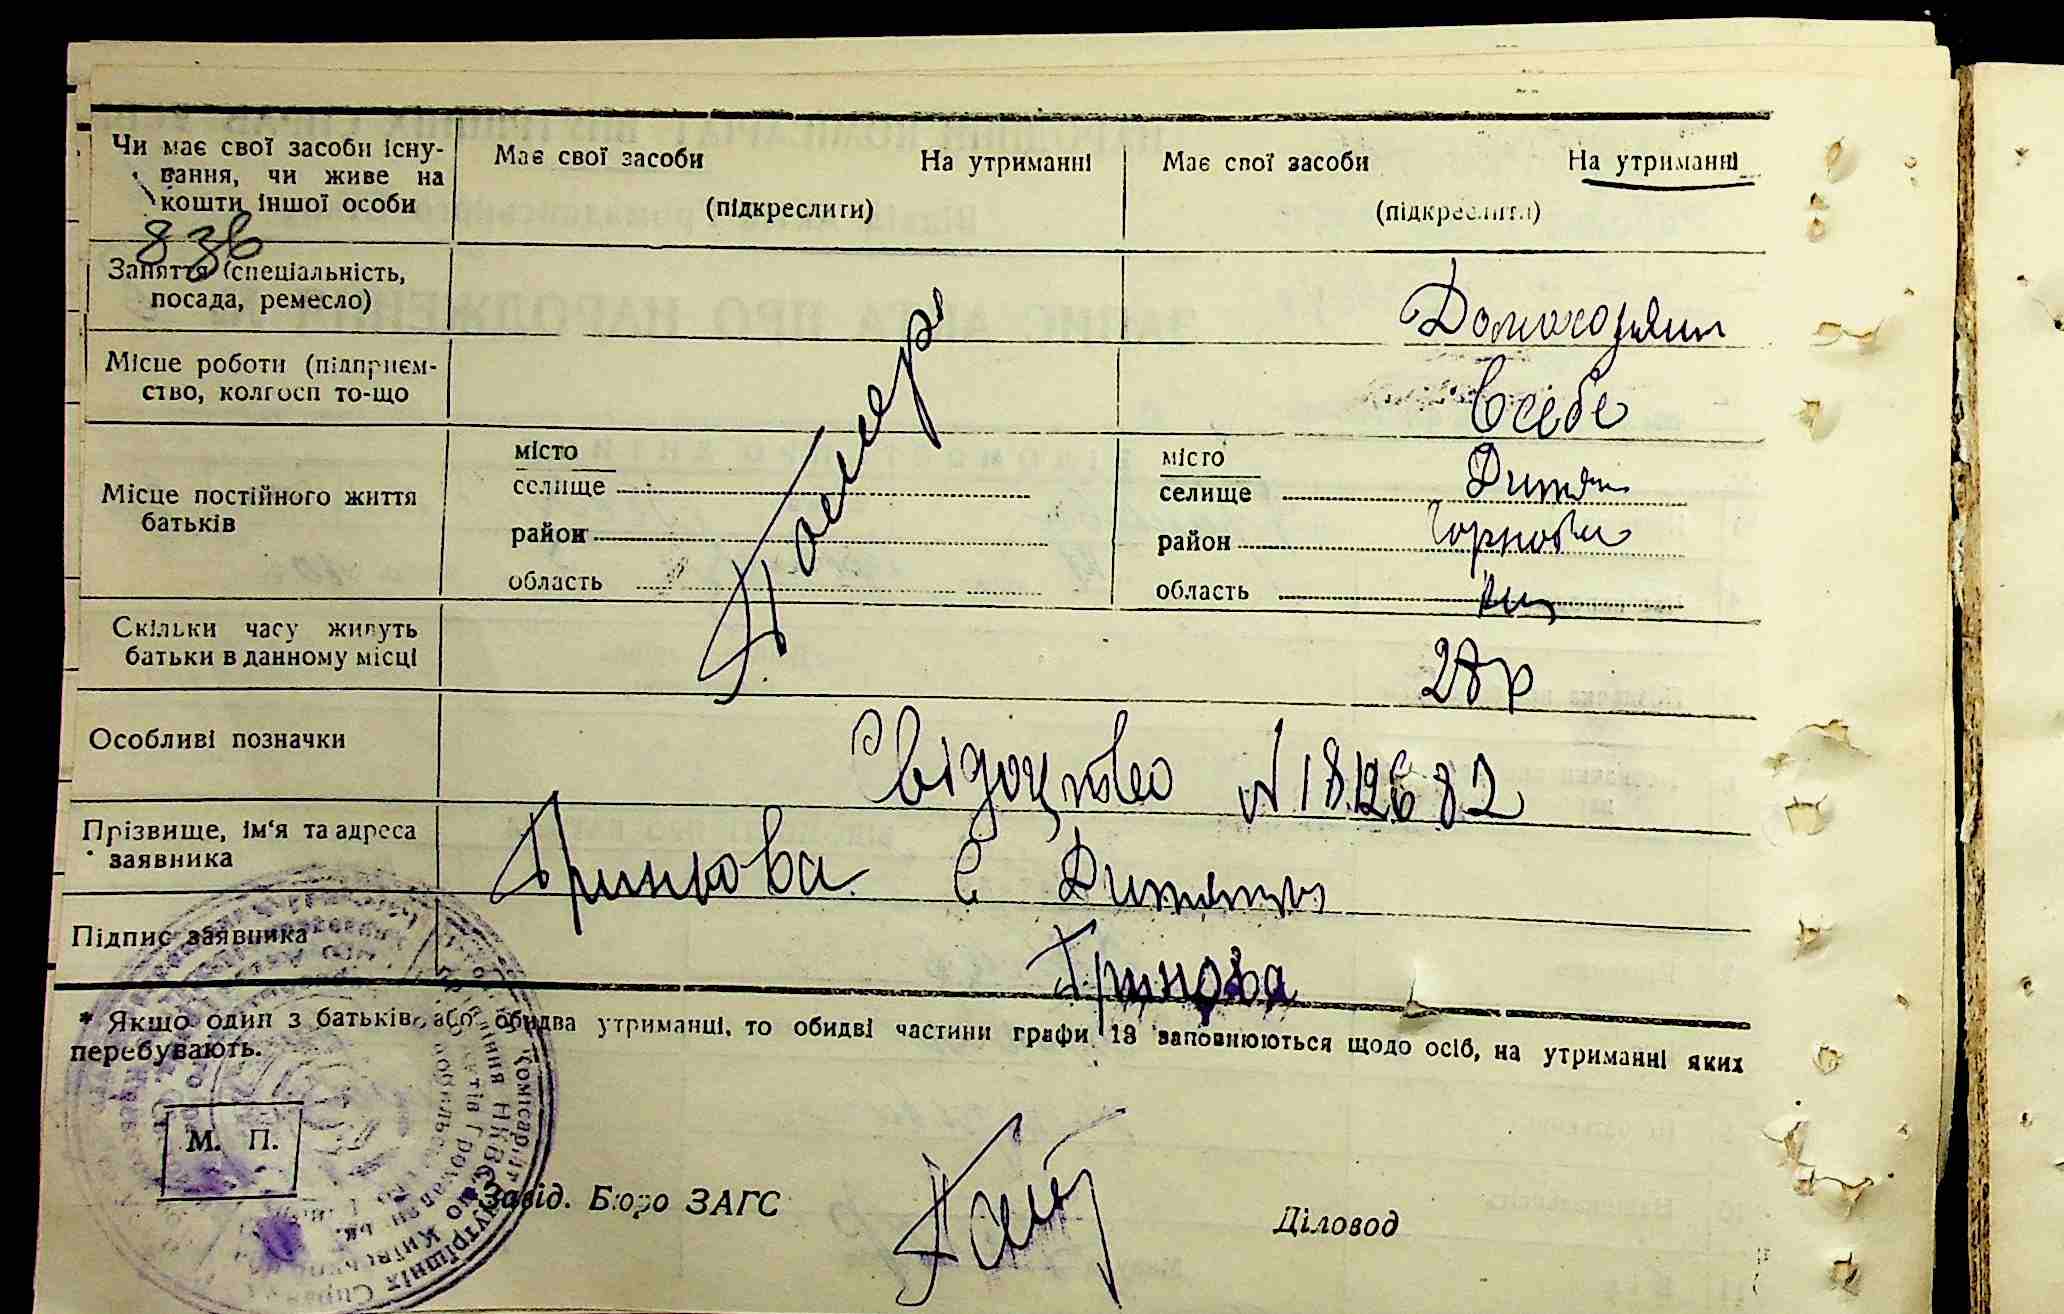 Чи має свої засоби існу-
вання, чи живе на
кошти іншої особи
Має свої засоби На утриманні
(підкреслити)
Має свої засоби На утриманні
(підкреслити)
836
Заняття (спеціальність,
посада, ремесло)
Місце роботи (підприєм-
ство, колгосп то-що
Помер
В себе
Місце постійного життя
батьків
місто
селище
район
область
місто
селище Дитятки
район
область
Скільки часу живуть
батьки в данному місці
28 р
Особливі позначки
Свідоцтво № 1812682
Прізвище, ім‘я та адреса
заявника
Гринкова Є Дитятки
Підпис заявника
* Якщо один з батьків, або обидва утриманці, то обидві частини графи 13 заповнюються щодо осіб, на утриманні яких
перебувають.
М. П.
Завід. Бюро ЗАГС
Діловод